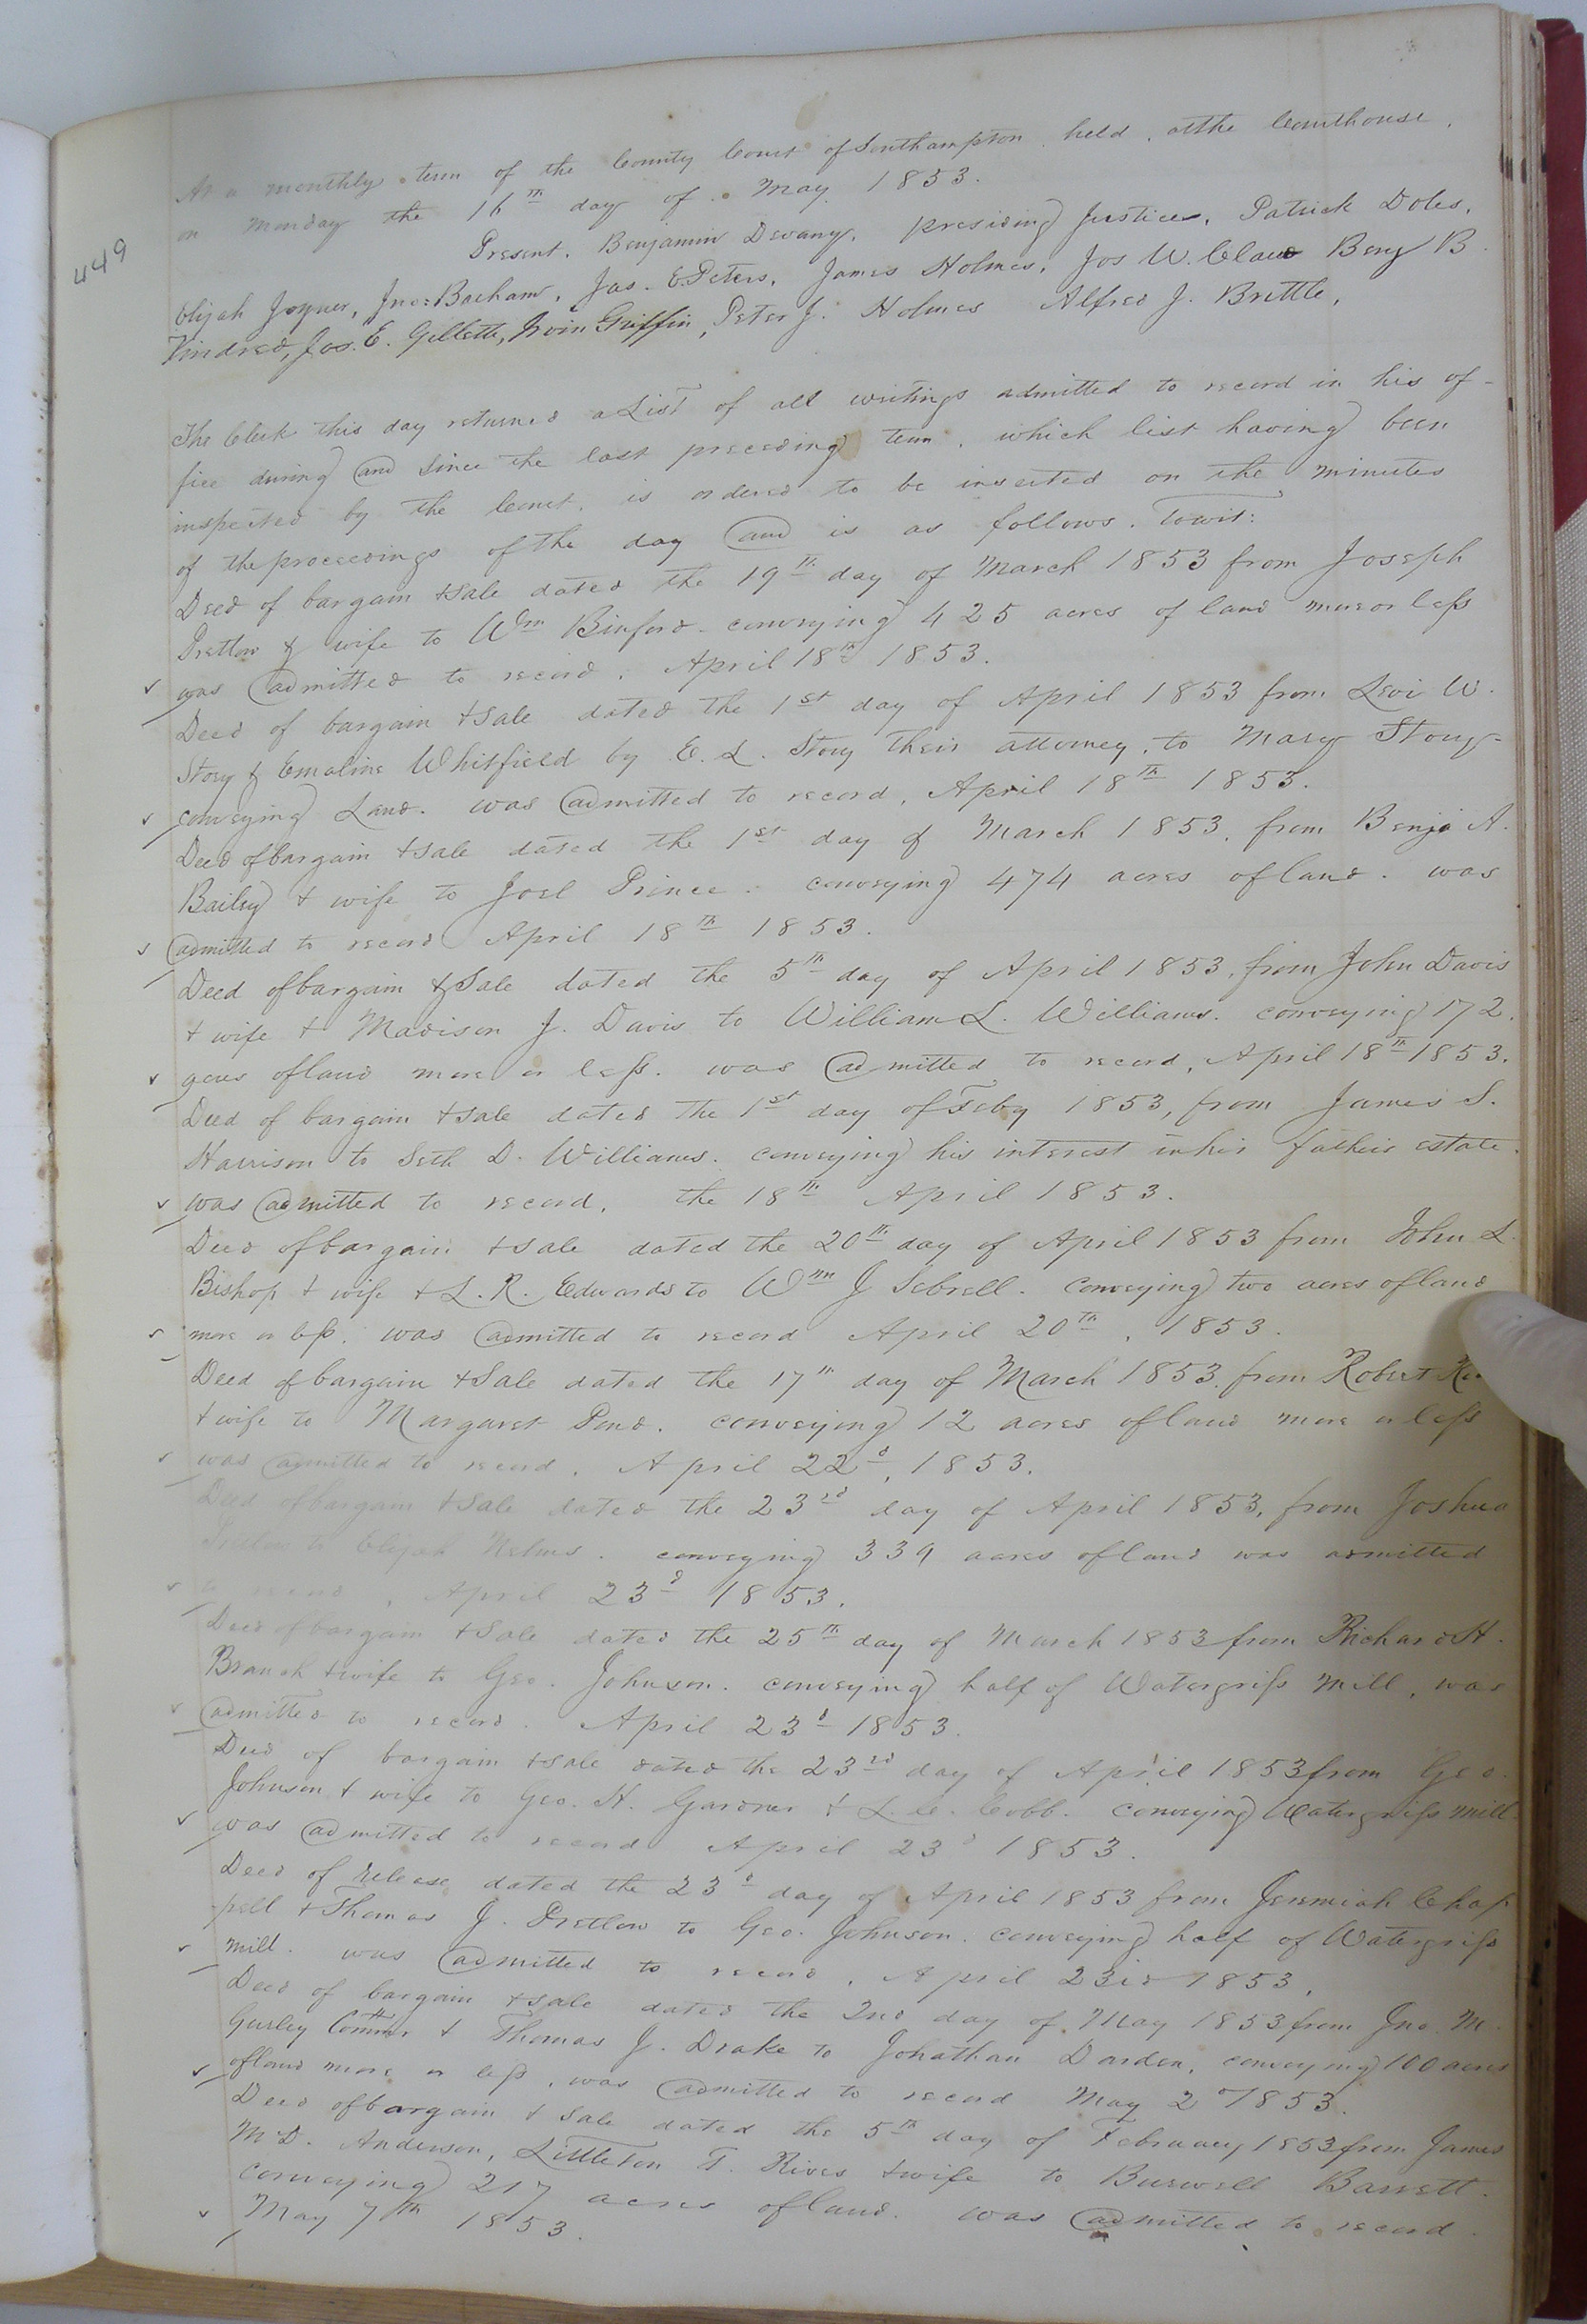 449
At a monthly term of the County Court of Southampton held, at the Courthouse,
on Monday the 16th day of May 1853.
Present, Benjamin Devany, presiding Justice, Patrick Doles,
Elijah Joyner, Jno: Barham, Jas. E. Peters, James Holmes, Jos W. Claud Benj B.
Kindred, Jos. E. Gillette, Irvin Griffin, Peter J. Holmes Alfred J. Brittle,
The Clerk this day returned a List of all writings admitted to record in his of-
fice during and since the last preceeding term, which list having been
inspected by the Court, is ordered to be inserted on the minutes
of the proceedings of the day and is as follows. Towit:
Deed of bargain & sale dated the 19th day of March 1853 from Joseph
Pretlow & wife to Wm Binford conveying 425 acres of land more or less
was admitted to record, April 18th 1853.
Deed of bargain & sale dated the 1st day of April 1853 from Levi W.
Story & Emaline Whitfield by E. L. Story their attorney, to Mary Story
conveying Land. was admitted to record, April 18th 1853.
Deed of bargain & sale dated the 1st day of March 1853, from Benja A.
Bailey & wife to Joel Prince. conveying 474 acres of land. was
admitted to record April 18th 1853.
Deed of bargain & Sale dated the 5th day of April 1853, from John Davis
& wife & Madison J. Davis to William L. Williams. conveying 172.
acres of land more or less. was admitted to record, April 18th 1853.
Deed of bargain & sale dated the 1st day of Feby 1853, from James S.
Harrison to Seth D. Williams. conveying his interest in his fathers estate.
was admitted to record, the 18th April 1853.
Deed of bargain & sale dated the 20th day of April 1853 from John L.
Bishop & wife & L. R. Edwards to Wm J Sebrell. conveying two acres of land
more or less. was admitted to record April 20th, 1853.
Deed of bargain & Sale dated the 17th day of March 1853. from Robert
& wife to Margaret Pond. conveying 12 acres of land more or less
was admitted to record, April 22d, 1853.
Deed of bargain & Sale dated the 23rd day of April 1853, from Joshua
Pretlow to Elijah Nelms. conveying 339 acres of land was admitted
to record, April 23d 1853.
Deed of bargain & Sale dated the 25th day of March 1853 from Richard H.
Branch & wife to Geo. Johnson. conveying half of Watergriss Mill, was
admitted to record. April 23d 1853.
Deed of bargain & sale dated the 23rd day of April 1853 from Geo.
Johnson & wife to Geo. H. Gardner & L. C. Cobb. conveying Watergriss mill
was admitted to record April 23d 1853.
Deed of release dated the 23d day of April 1853 from Jeremiah Chap
-pell & Thomas J. Pretlow to Geo. Johnson. conveying half of Watergriss
mill. was admitted to record, April 23rd 1853,
Deed of bargain & sale dated the 2nd day of May 1853 from Jno. M.
Gurley Commr & Thomas J. Drake to Johathan Darden, conveying 100 acres
of land more or less, was admitted to record May 2d 1853.
Deed of bargain & Sale dated the 5th day of February 1853 from James
McD. Anderson, Littleton T. Rives & wife to Burwell Barrett.
conveying 217 acres of land. was admitted to record
May 7th 1853.